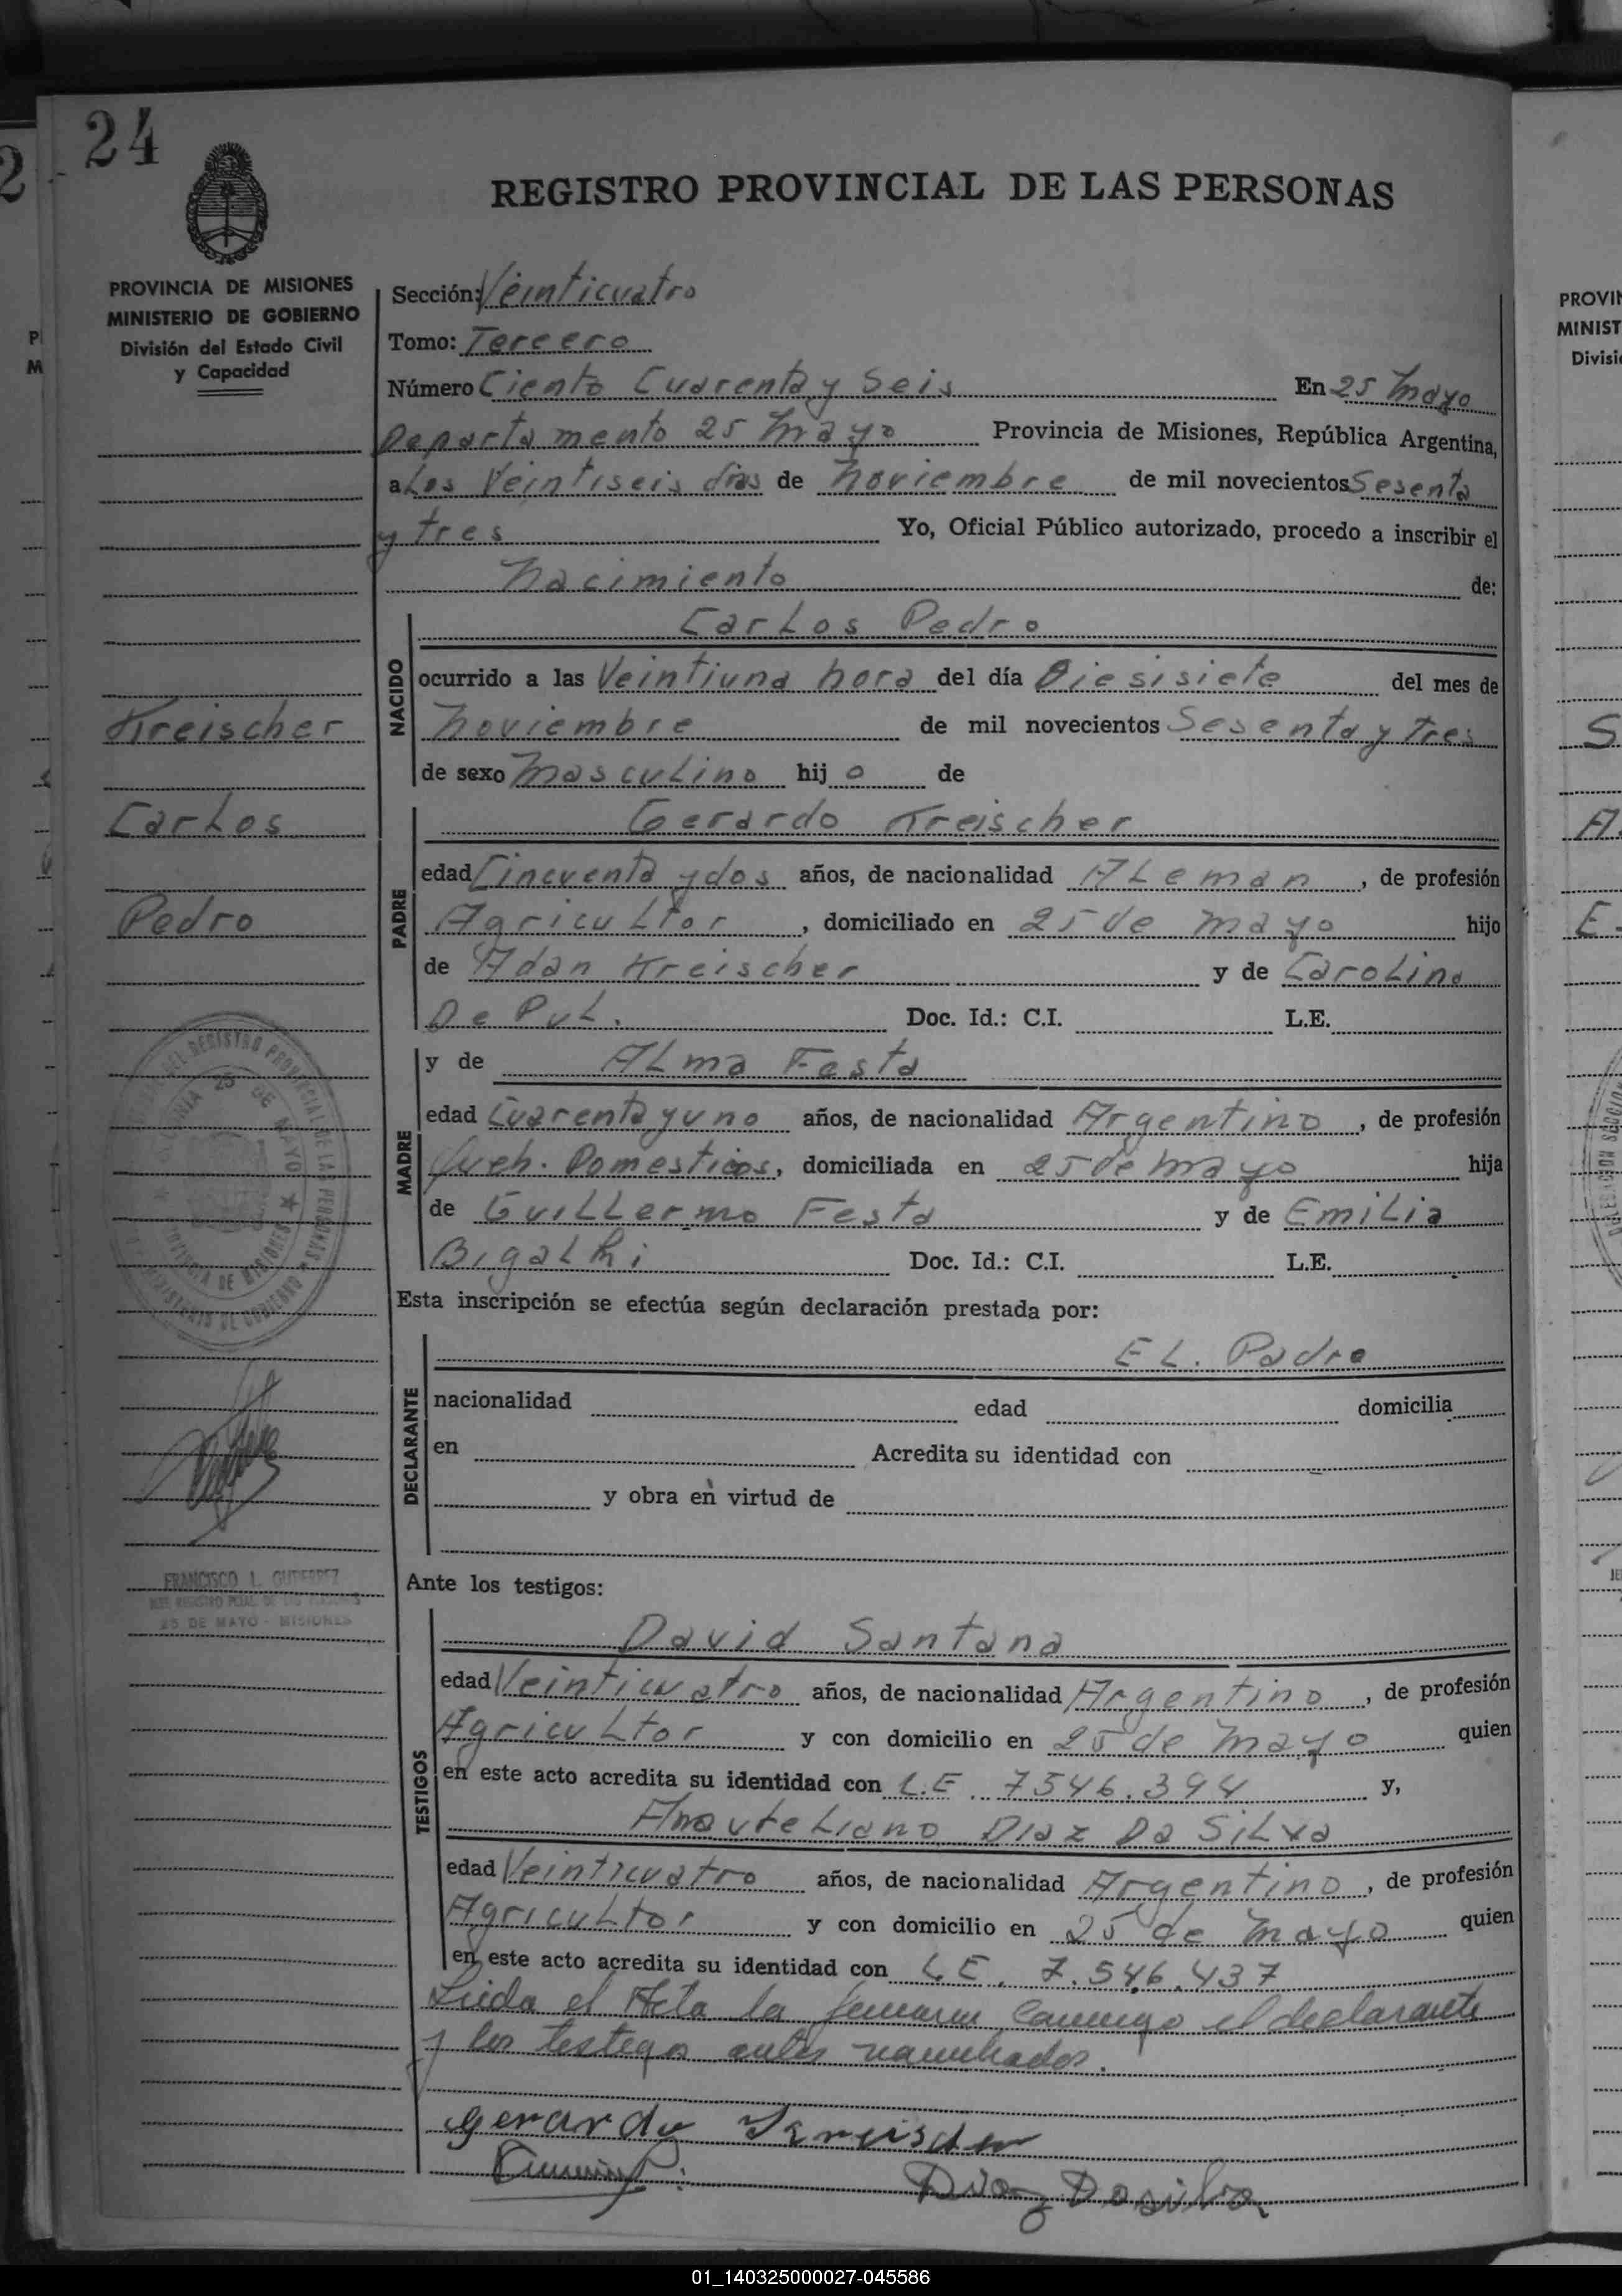 24
REGISTRO PROVINCIAL DE LAS PERSONAS
PROVINCIA DE MISIONES
MINISTERIO DE GOBIERNO
División del Estado Civil
y Capacidad
Sección: Veinticuatro
Tomo: Tercero
Número Ciento Cuarenta y Seis En 25 Mayo
Departamento 25 Mayo Provincia de Misiones, República Argentina,
a Los Veintiseis dias de Noviembre de mil novecientos Sesenta
y tres Yo, Oficial Público autorizado, procedo a inscribir el
Nacimiento de:
NACIDO
Carlos Pedro
ocurrido a las Veintiuna hora del día Diesisiete del mes de
Noviembre de mil novecientos Sesenta y tres
de sexo Masculino hijo de
Kreischer
Carlos
Pedro
PADRE
Gerardo Kreischer
edad Cincuenta y dos años, de nacionalidad ALeman, de profesión
Agricultor, domiciliado en 25 de Mayo hijo
de Adan Kreischer y de Carolina
De Pul. Doc. Id.: C.I. L.E.
MADRE
y de ALma Festa
edad Cuarenta y uno años, de nacionalidad Argentino, de profesión
Queh. Domesticos, domiciliada en 25 de Mayo hija
de Guillermo Festa y de Emilia
Bigalki Doc. Id.: C.I. L.E.
Esta inscripción se efectúa según declaración prestada por:
DECLARANTE
EL. Padre
nacionalidad edad domicilia
en Acredita su identidad con
y obra en virtud de
FRANCISCO L. GUTIERREZ
JEFE REGISTRO PCIAL. DE LAS PERSONAS
25 DE MAYO - MISIONES
Ante los testigos:
TESTIGOS
David Santana
edad Veinticuatro años, de nacionalidad Argentino, de profesión
Agricultor y con domicilio en 25 de Mayo quien
en este acto acredita su identidad con L.E. 7546.394 y,
Diaz Da Silva
edad Veinticuatro años, de nacionalidad Argentino, de profesión
Agricultor y con domicilio en 25 de Mayo quien
en este acto acredita su identidad con L.E. 7.546.437
Leida el Acta la firman conmigo el declarante
y los testigos antes nombrados.
Gerardo Kreischer
Diaz Dasilva
01_140325000027-045586